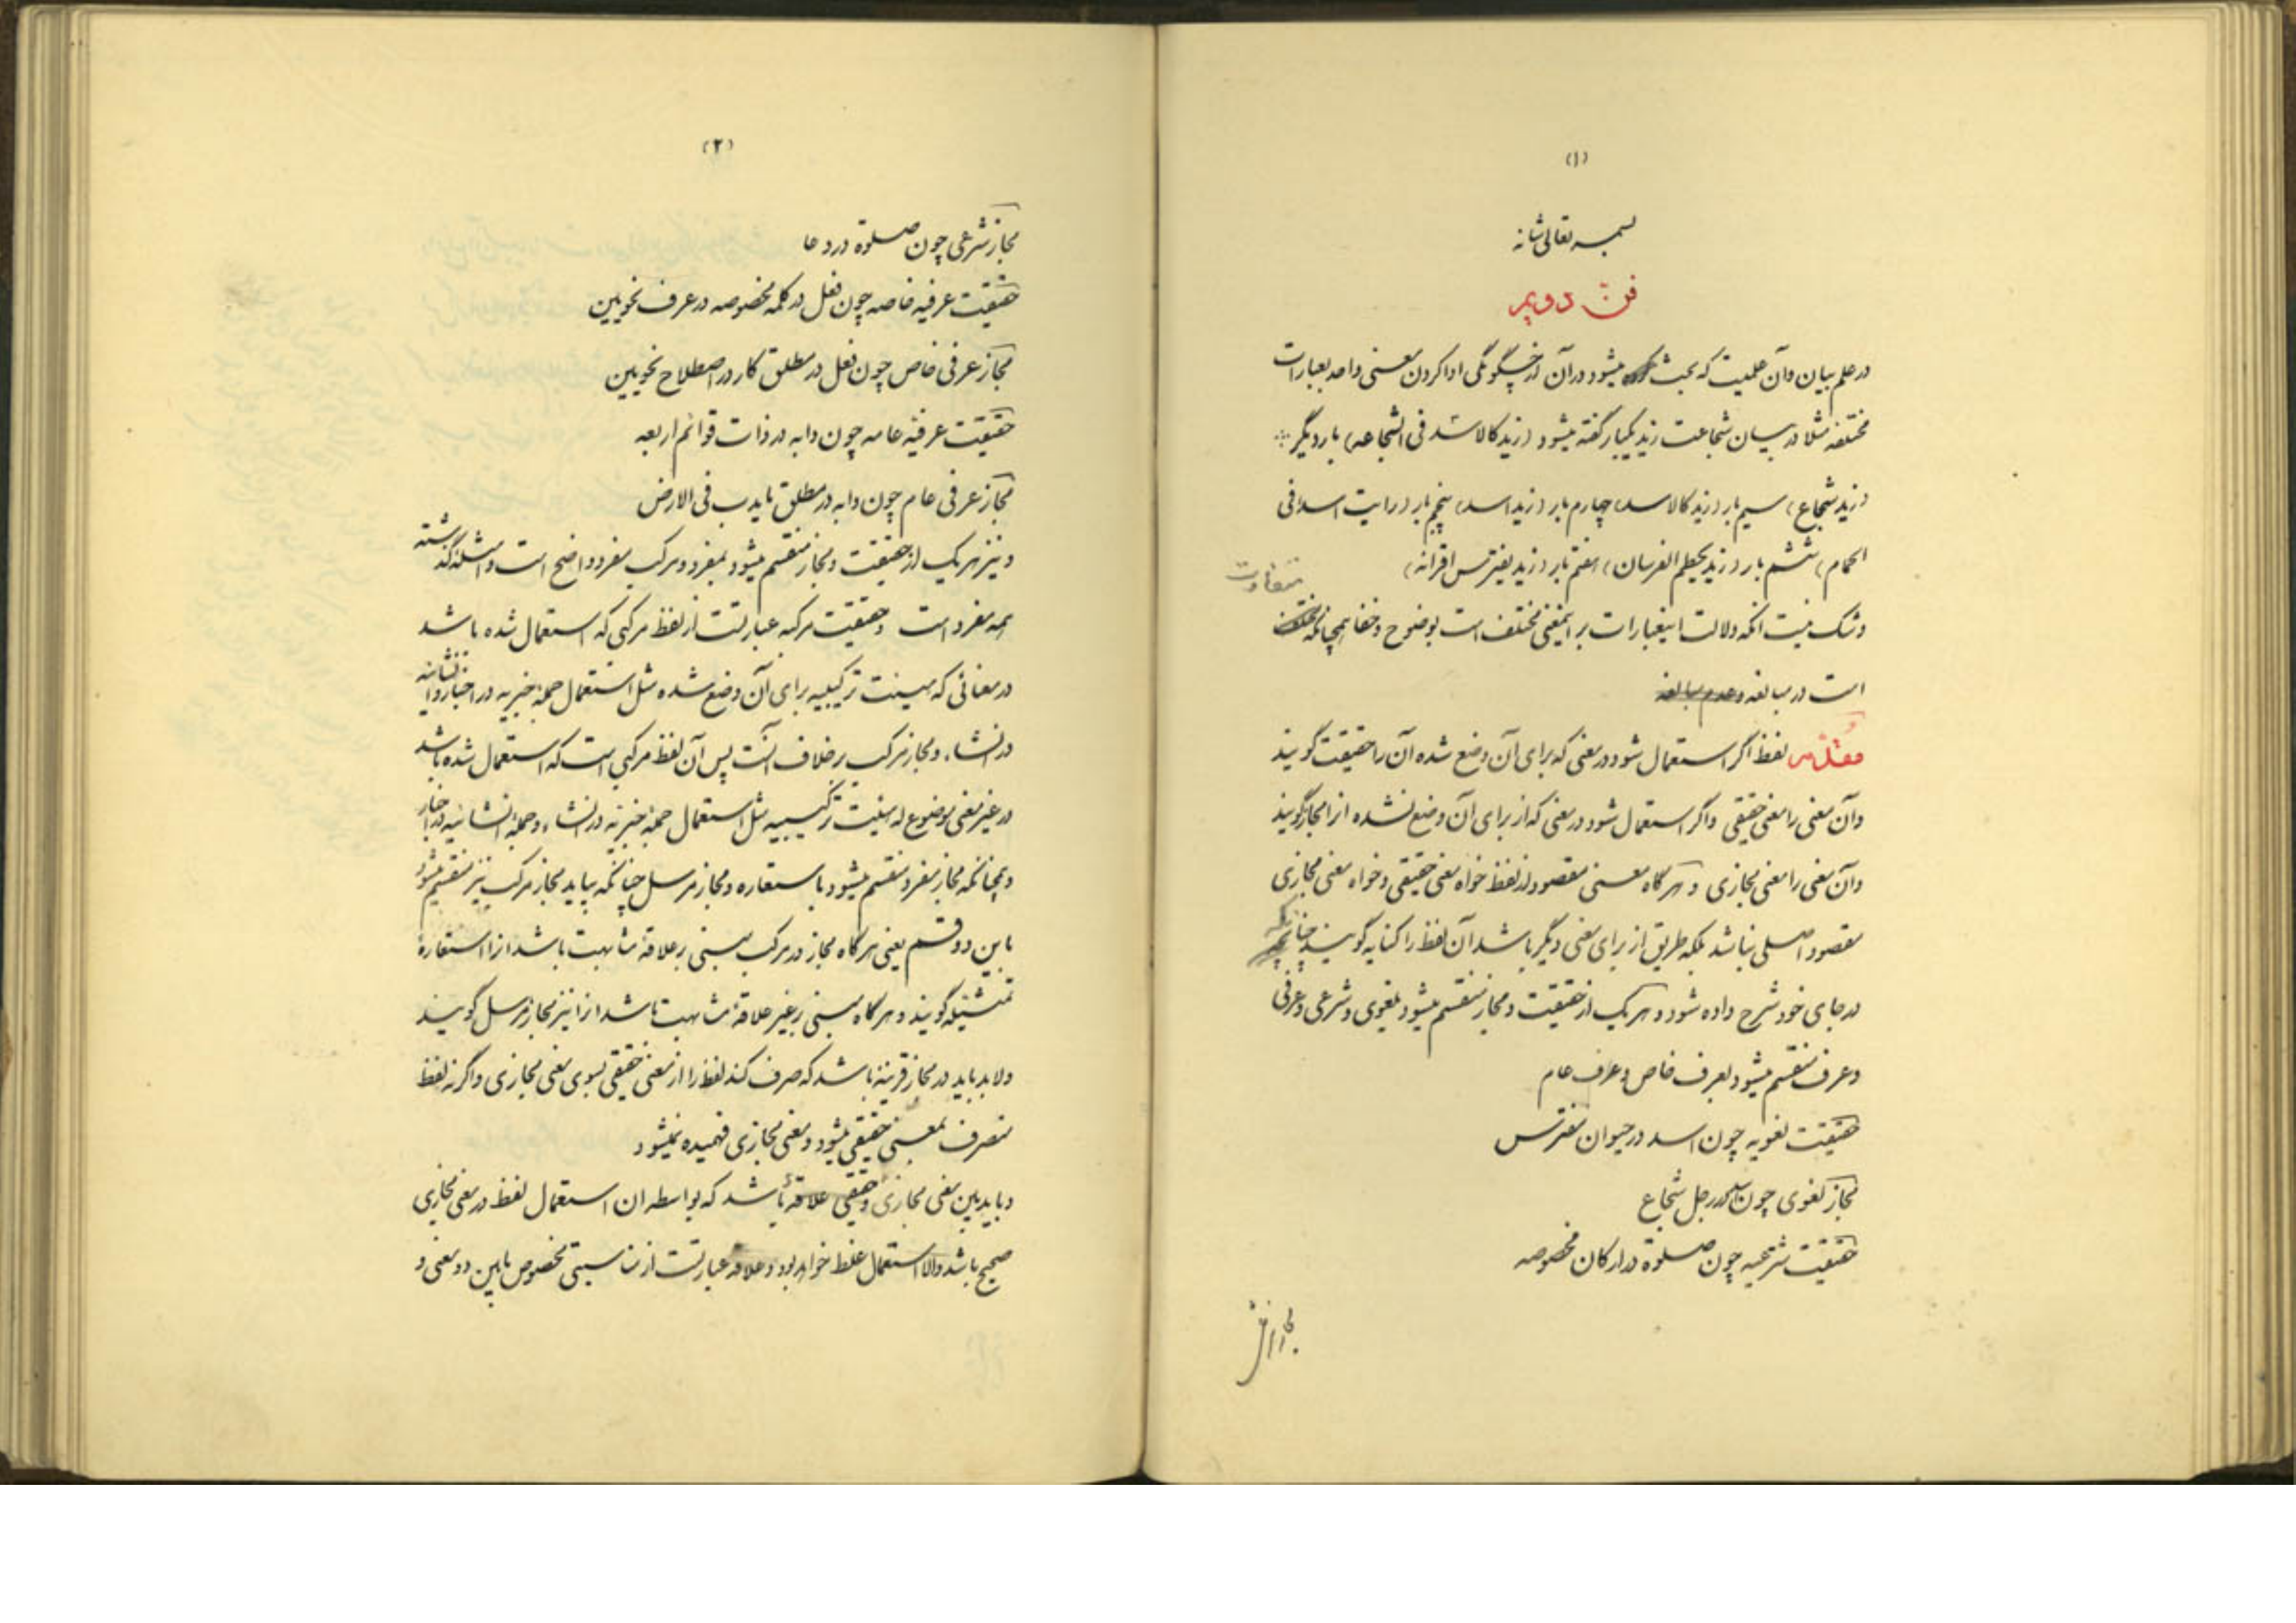 (۱)
بسمه تعالی شانه
فنّ دویم
در علم بیان و آن علمیت که بحث میشود در آن از چگونگی ادا کردن معنی واحد بعبارات
مختلفه مثلا در بیان شجاعت زید یکبار گفته میشود (زید کالاسد فی الشجاعه) بار دیگر
(زید شجاع) سیم بار (زید کالاسد) چهارم بار (زید اسد) پنجم بار (رایت اسدا فی
الحمام) ششم بار (زید یحطم الفرسان) هفتم بار (زید یفترس اقرانه)
و شک نیست انکه دلالت اینعبارات بر اینمعنی مختلف است بوضوح و خفا همچنانکه متفاوت
است در مبالغه و عدم مبالغه
مقدّمه لفظ اگر استعمال شود در معنی که برای آن وضع شده آن را حقیقت گویند
و آن معنی را معنی حقیقی و اگر استعمال شود در معنی که از برای آن وضع نشده انرا مجاز گویند
و آن معنی را معنی مجازی و هرگاه معنی مقصود از لفظ خواه معنی حقیقی و خواه معنی مجازی
مقصود اصلی نباشد بلکه طریق از برای معنی دیگر باشد آن لفظ را کنایه گویند چنانکه
در جای خود شرح داده شود و هر یک از حقیقت و مجاز منقسم میشود بلغوی و شرعی و عرفی
و عرف منقسم میشود بعرف خاص و عرف عام
حقیقت لغویه چون اسد در حیوان مفترس
مجاز لغوی چون اسد در رجل شجاع
حقیقت شرعیه چون صلوة در ارکان مخصوصه
(۲)
مجاز شرعی چون صلوة در دعا
حقیقت عرفیه خاصه چون فعل در کلمه مخصوصه در عرف نحویین
مجاز عرفی خاص چون فعل در مطلق کار در اصطلاح نحویین
حقیقت عرفیه عامه چون دابه در ذات قوائم اربعه
مجاز عرفی عام چون دابه در مطلق مایدب فی الارض
و نیز هر یک از حقیقت و مجاز منقسم میشود بمفرد و مرکب مفرد واضح است و امثله گذشته
همه مفرد است و حقیقت مرکبه عبارتست از لفظ مرکبی که استعمال شده باشد
در معنائی که هیئت ترکیبیه برای آن وضع شده مثل استعمال جملهٔ خبریه در اخبار و انشائیه
در انشاء و مجاز مرکب برخلاف آنست پس آن لفظ مرکبی است که استعمال شده باشد
در غیر معنی موضوع له هیئت ترکیبیه مثل استعمال جملهٔ خبریه در انشاء و جملهٔ انشائیه در اخبار
و همچنانکه مجاز مفرد منقسم میشود باستعاره و مجاز مرسل چنانکه بیاید مجاز مرکب نیز منقسم میشود
باین دو قسم یعنی هرگاه مجاز در مرکب مبنی بر علاقهٔ مشابهت باشد انرا استعارهٔ
تمثیلیه گویند و هرگاه مبنی بر غیر علاقهٔ مشابهت باشد انرا نیز مجاز مرسل گویند
و لابد باید در مجاز قرینهٔ باشد که صرف کند لفظ را از معنی حقیقی بسوی معنی مجازی و اگر نه لفظ
منصرف بمعنی حقیقی میشود و معنی مجازی فهمیده نمیشود
و باید بین معنی مجازی و حقیقی علاقهٔ باشد که بواسطه ان استعمال لفظ در معنی مجازی
صحیح باشد والا استعمال غلط خواهد بود و علاقه عبارتست از مناسبتی مخصوص مابین دو معنی و